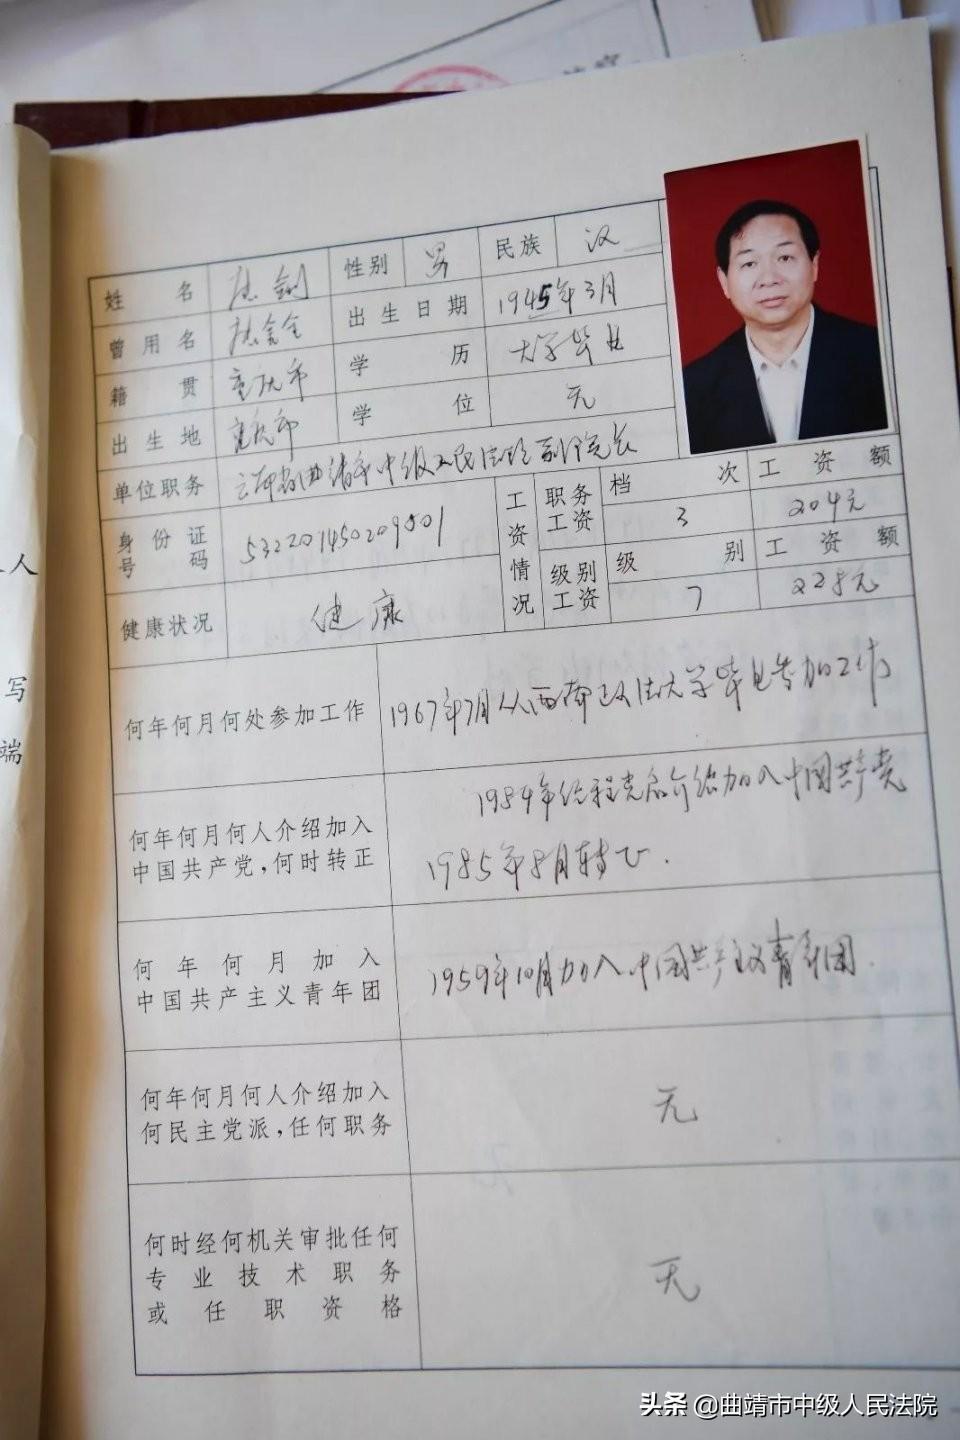 姓名 性别 男 民族 汉
曾用名 出生日期 1945年3月
籍贯 重庆市 学历 大学毕业
出生地 重庆市 学位 无
单位职务 云南省曲靖市中级人民法院副院长
身份证号码 532201450209501
工资情况 职务工资 档次 3 工资额 204元
级别工资 级别 7 工资额 225元
健康状况 健康
何年何月何处参加工作 1967年7月从西南政法大学毕业参加工作
何年何月何人介绍加入
中国共产党,何时转正
1984年经程党启介绍加入中国共产党
1985年8月转正.
何年何月加入
中国共产主义青年团
1959年10月加入中国共产主义青年团.
何年何月何人介绍加入
何民主党派,任何职务
无
何时经何机关审批任何
专业技术职务
或任职资格
无
人
写
端
头条 @曲靖市中级人民法院